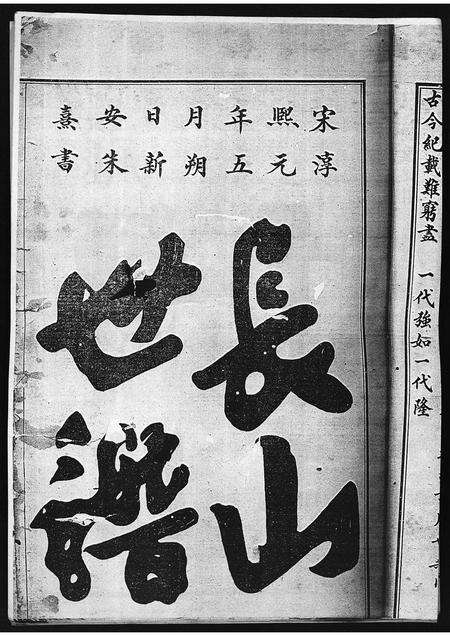 古今紀載難窮盡 一代強如一代隆
宋淳
熙元
年五
月朔
日新
安朱
熹書
長山
世譜